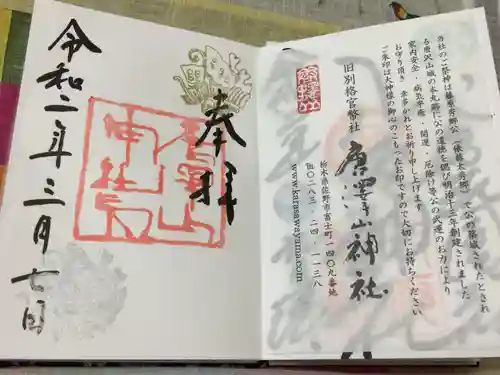 当社のご祭神は藤原秀郷公(俵藤太秀郷)で公の築城されたとされ
る唐沢山城の本丸跡に公の遺徳を偲び明治十三年創建されました
家内安全・病気平癒・開運・厄除け等公の武運のお力により
お守り頂き・幸多かれとお祈り申し上げます
ご朱印は大神様の御心のこもったお印ですので大切にお持ちください
旧別格官幣社 唐澤山神社
栃木県佐野市富士町一四〇九番地
〇二八三-二四-一一三八
www.karasawayama.com
奉拝
唐澤山神社
令和二年三月七日